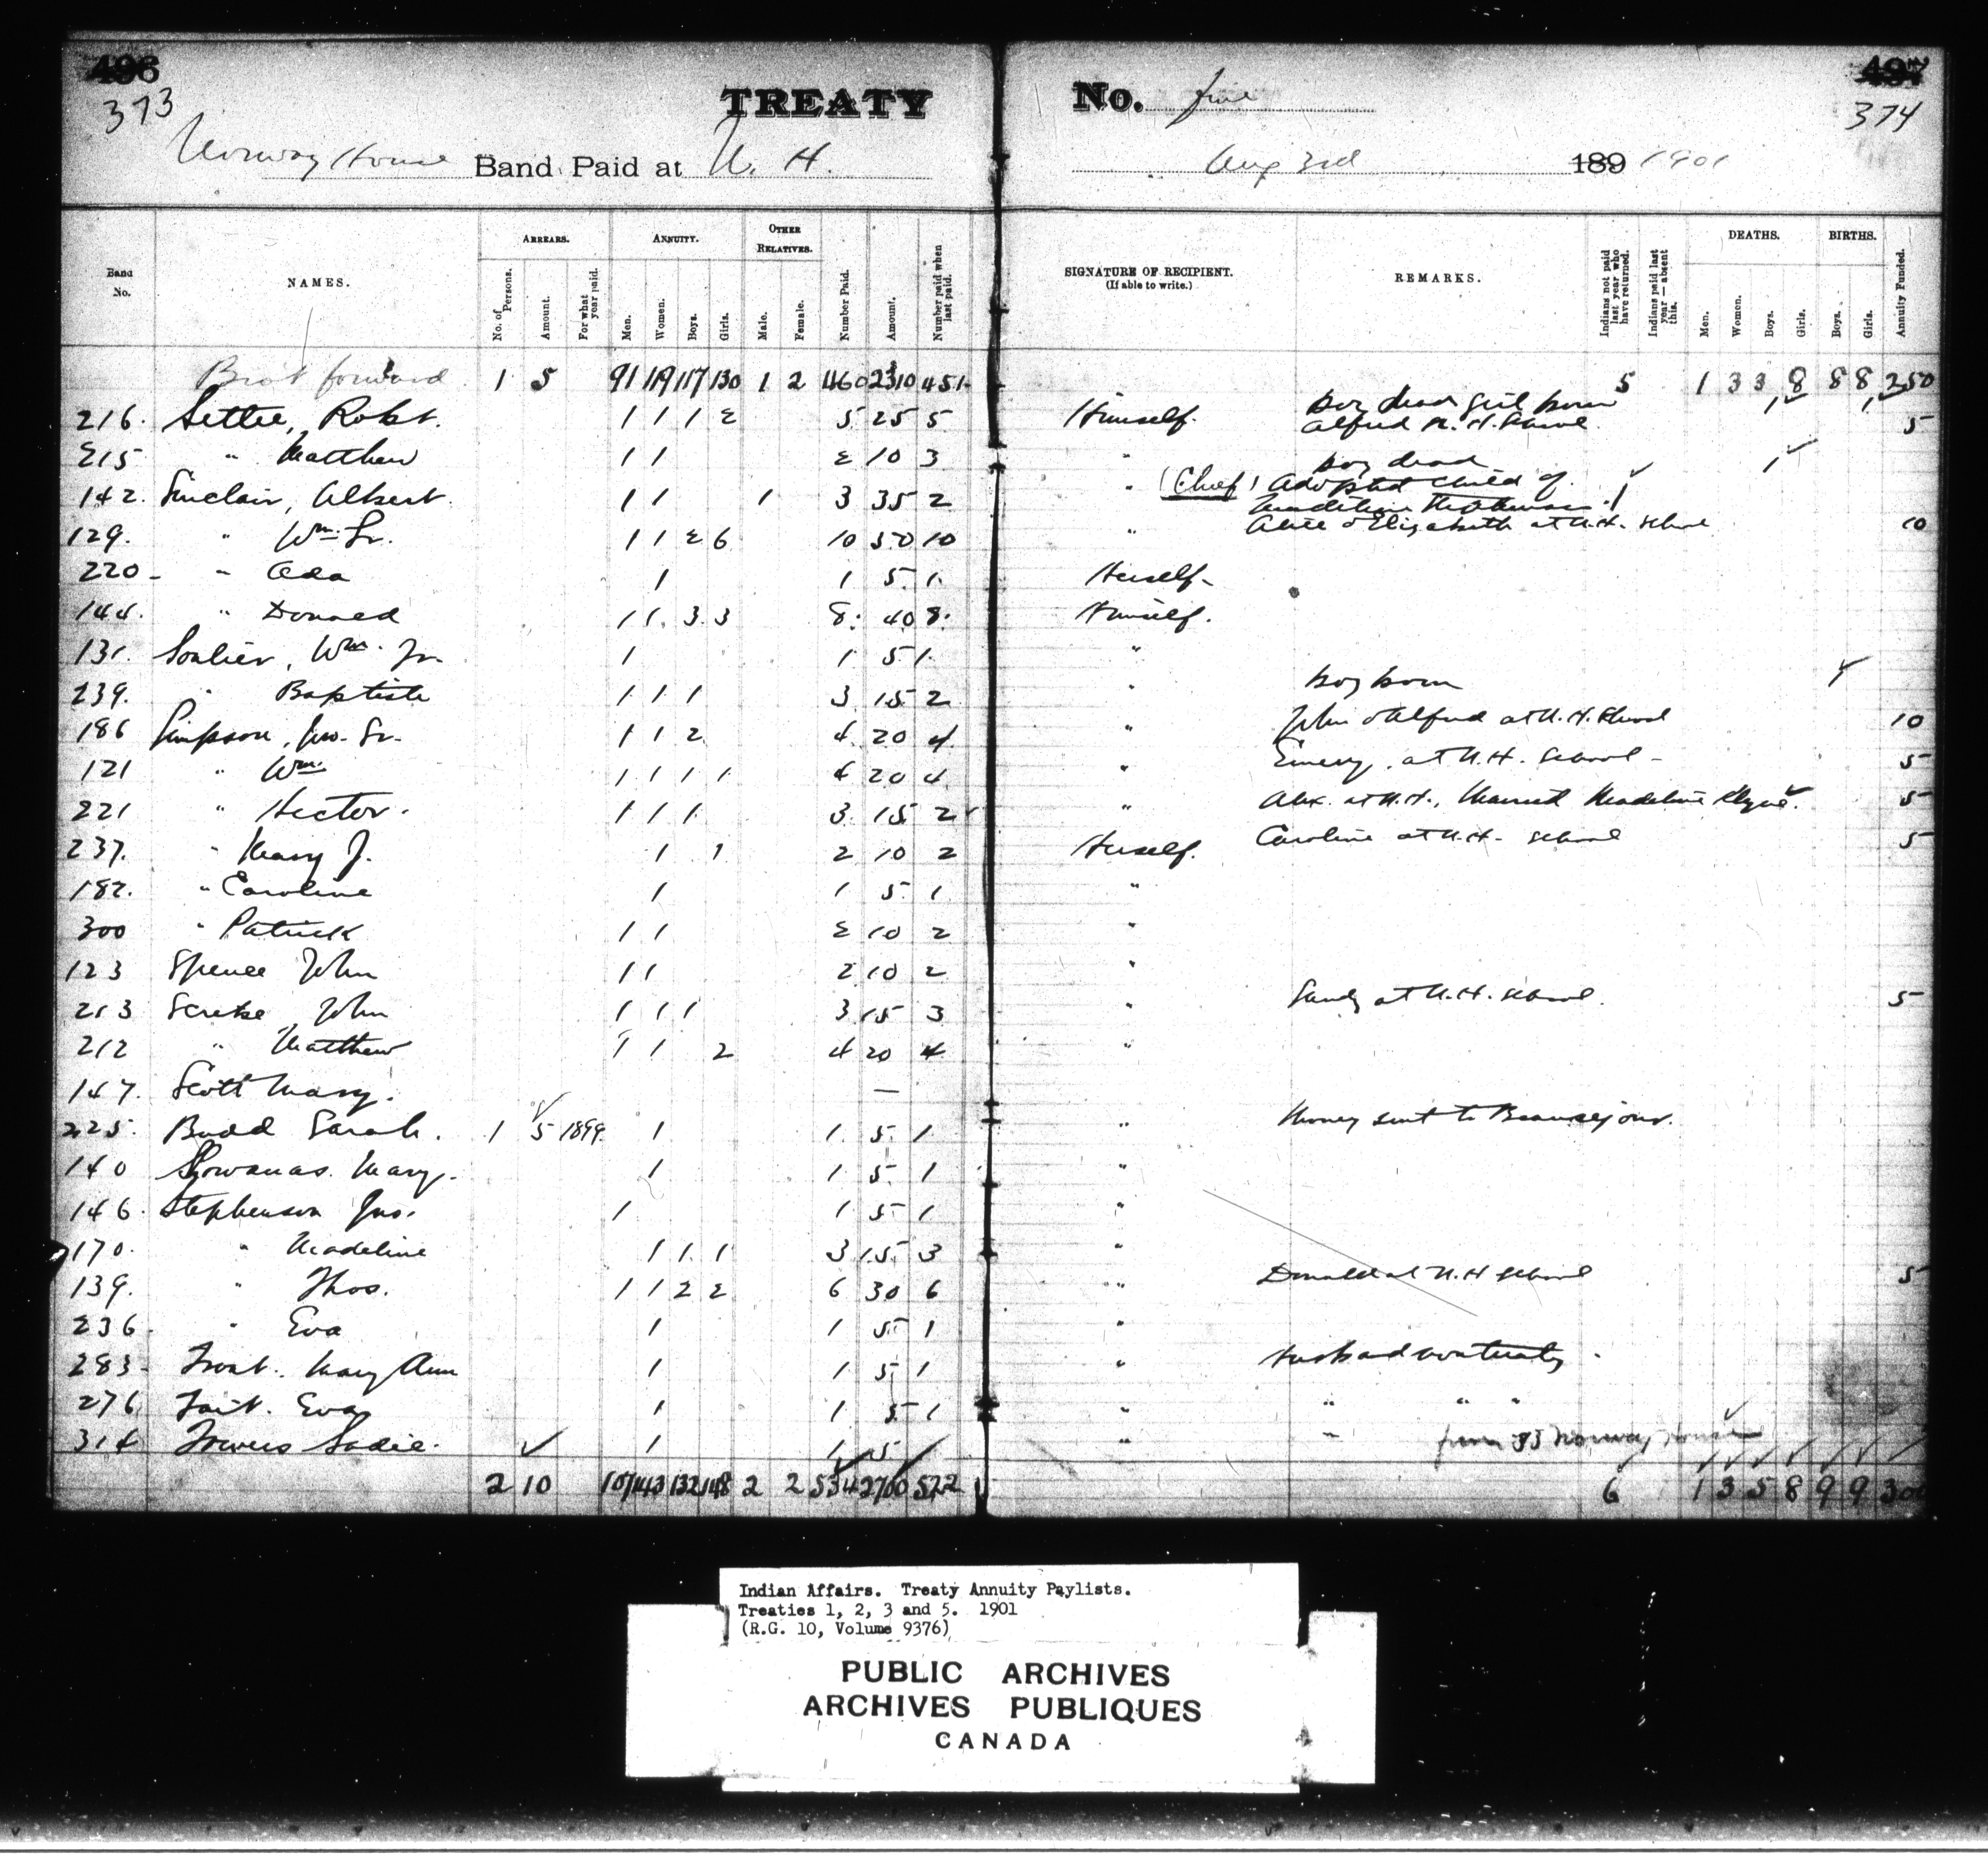 496
373
TREATY No. five
497
374
Norway House Band Paid at N. H. Aug 3rd 189 1901
Band No.
NAMES.
ARREARS.
No. of Persons.
Amount.
For what year paid.
ANNUITY.
Men.
Women.
Boys.
Girls.
OTHER RELATIVES.
Male.
Female.
Number Paid.
Amount.
Number paid when last paid.
SIGNATURE OF RECIPIENT.
(If able to write.)
REMARKS.
Indians not paid last year who have returned.
Indians paid last year — absent this.
DEATHS.
Men.
Women.
Boys.
Girls.
BIRTHS.
Boys.
Girls.
Annuity Funded.
Brot forward 1 5 91 119 117 130 1 2 460 2310 451 5 1 3 3 8 8 8 250
216. Settee, Robt. 1 1 1 2 5 25 5 Himself. boy dead girl born 1 1
Alfred N. H. School 5
215 " Matthew 1 1 2 10 3 " boy dead 1
142. Sinclair, Albert. 1 1 1 3 35 2 " (Chief) Adopted child of 1
Madeline
129. " Wm. Sr. 1 1 2 6 10 50 10 " Alice & Elizabeth at N.H. School 10
220 - " Ada 1 1 5. 1. Herself-
144. " Donald 1 1. 3. 3 8. 40 8. Himself.
131. Soulier, Wm. Jr. 1 1 5 1. "
239. " Baptiste 1 1 1 3 15 2 " boy born 1
186 Simpson, Jno. Sr. 1 1 2 4 20 4 " John & Alfred at N.H. School 10
121 " Wm. 1 1 1 1 4 20 4 " Emery. at N.H. School - 5
221 " Hector. 1 1 1 3 15 2 " Alex. at N.H., Married Madeline Clyne. 5
237. " Mary J. 1 1 2 10 2 Herself. Caroline at N.H. School 5
182. " Caroline 1 1 5. 1 "
300 " Patrick 1 1 2 10 2 "
123 Spence John 1 1 2 10 2 "
213 Scribe John 1 1 1 3 15 3 " Sandy at N.H. School. 5
212 " Matthew 1 1 2 4 20 4 "
147. Scott Mary. —
225. Budd Sarah. 1 5 1899 1 1. 5. 1 " Money sent to Beausejour.
140 Showanas. Mary. 1 1 5. 1 "
146. Stephenson Jno. 1 1 5. 1 "
170. " Madeline 1 1. 1 3 15. 3 "
139. " Thos. 1 1 2 2 6 30 6 " Donald at N.H School 5
236. " Eva 1 1 5. 1 "
283- Trout. Mary Ann 1 1 5 1 " Husband nontreaty -
276 Tait. Eva 1 1. 5 1 " " " "
314 Towers Sadie. 1 1 5 " " from 83 Norway House
2 10 107 143 132 148 2 2 534 2700 522 6 1 3 5 8 9 9 300
Indian Affairs. Treaty Annuity Paylists.
Treaties 1, 2, 3 and 5. 1901
(R.G. 10, Volume 9376)
PUBLIC ARCHIVES
ARCHIVES PUBLIQUES
CANADA